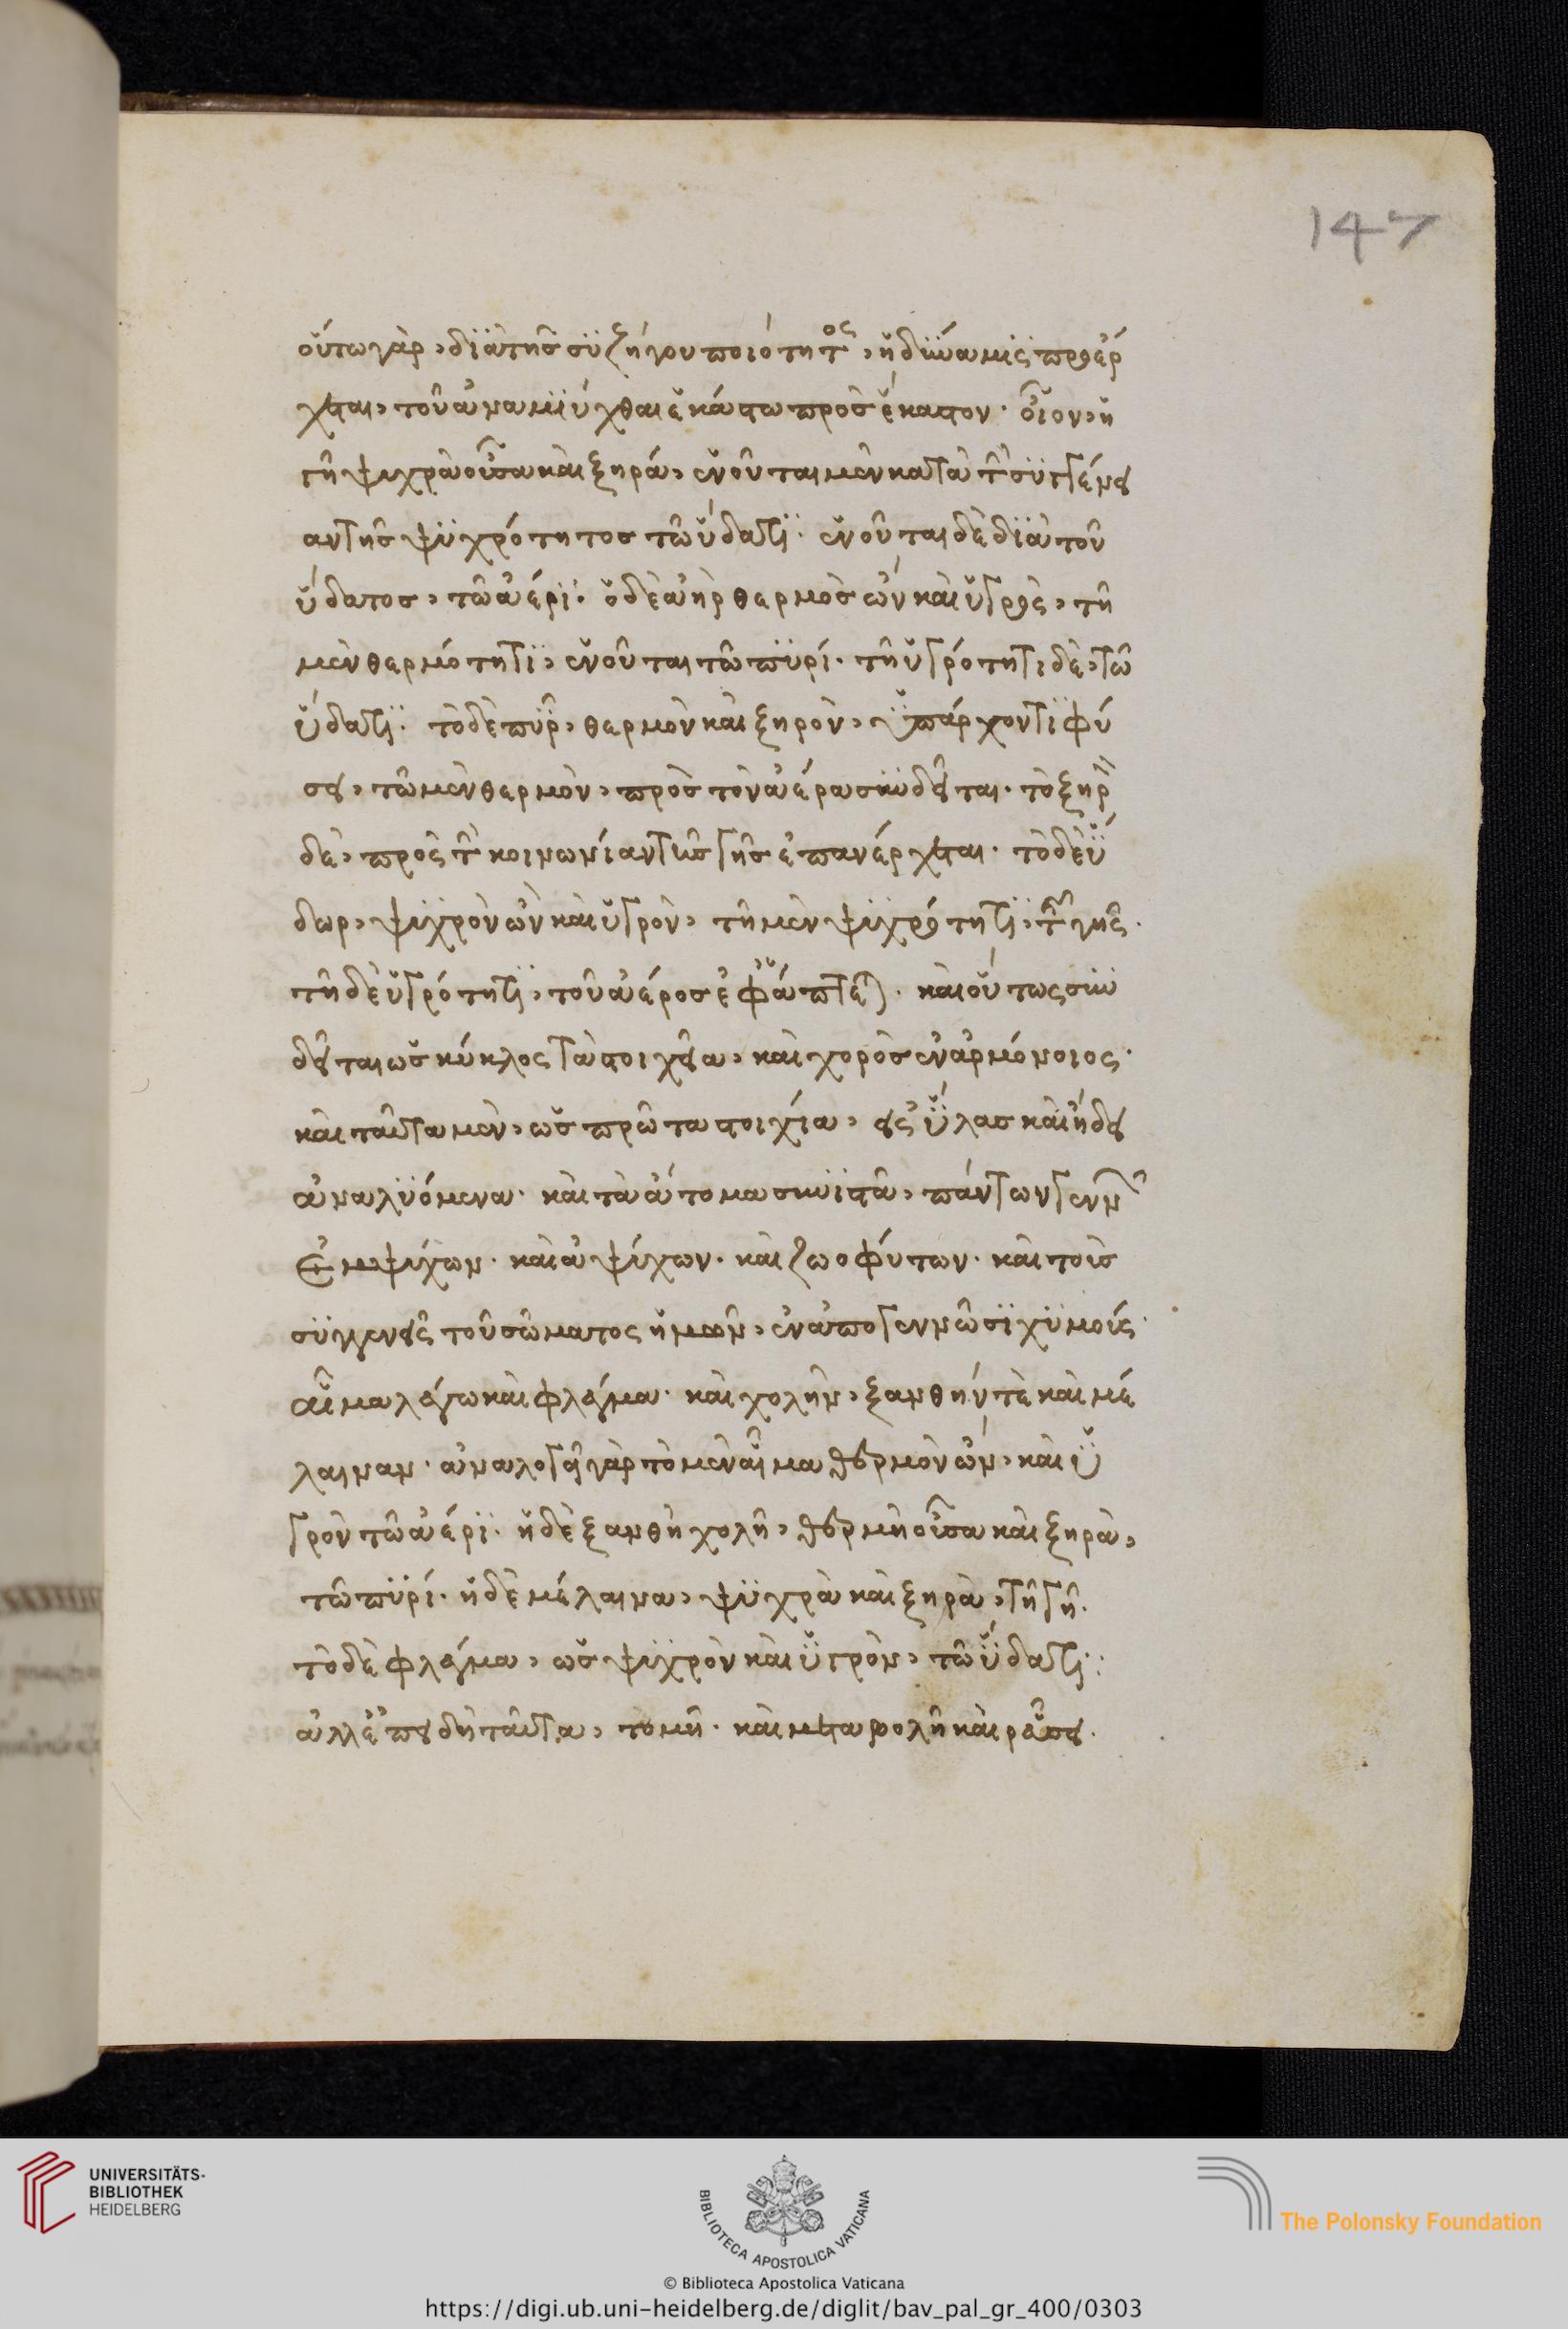 147
οὕτω γὰρ, διὰ τῆς συζήγου ποιότητος, ἡ δύναμις προέρ
χεται, τοῦ ἀναμίγχθαι ἑκάστω πρὸς ἕκαστον. οἷον, ἡ
γῆ ψυχρὰ οὖσα καὶ ξηρά, ἑνοῦται μὲν κατὰ τὴν συγγένει
αν τῆς ψϋχρότητος τῶ ὕδατϊ. ἑνοῦται δὲ διὰ τοῦ
ὕδατος, τῶ ἀέρϊ. ὁ δὲ ἀὴρ θερμὸς ὢν καὶ ὑγρὸς, τῆ
μὲν θερμότητϊ, ἑνοῦται τῶ πϋρί. τῆ ὑγρότητι δὲ, τῶ
ὕδατϊ. τὸ δὲ πῦρ, θερμὸν καὶ ξηρὸν, ὑπάρχον τῆ φύ
σει, τῶ μὲν θερμὸν, πρὸς τὸν ἀέρα συνδεῖται. τὸ ξηρὸν
δὲ, πρὸς τὴν κοινωνίαν τῆς γῆς ἐπανέρχεται. τὸ δὲ ὕ
δωρ, ψυχρὸν ὢν καὶ ὑγρὸν, τῆ μὲν ψυχρότητϊ, τῆς γῆς.
τῆ δὲ ὑγρότητϊ, τοῦ ἀέρος ἐφάπτεται. καὶ οὕτως συν
δεῖται ὡς κύκλος τὰ στοιχεῖα, καὶ χορὸς ἐναρμόνοιος.
καὶ ταῦτα μὲν, ὡς πρῶτα στοιχία, εἰς ὕλας καὶ ἤδει
ἀναλϋόμενα. καὶ τὰ ἄτομα συνιστᾶ, πάντων γενῶν
ἐμψύχων. καὶ ἀψύχων. καὶ ζωοφύτων. καὶ τοῖς
συγγενεῖς τοῦ σώματος ἡμῶν, ἐναπογεννῶσϊ χϋμοῖς.
αἷμα λέγω καὶ φλέγμα. καὶ χολὴν, ξανθήν τὲ καὶ μέ
λαιναν. ἀναλογεῖ γὰρ τὸ μὲν αἷμα θερμὸν ὢν, καὶ ὑ
γρὸν τῶ ἀέρϊ. ἡ δὲ ξανθὴ χολὴ, θερμὴ οὖσα καὶ ξηρὰ,
τῶ πϋρί. ἡ δὲ μέλαινα, ψϋχρὰ καὶ ξηρὰ, τῆ γῆ.
τὸ δὲ φλέγμα, ὡς ψυχρὸν καὶ ὑγρὸν, τῶ ὕδατϊ:
ἀλλ' ἐπεὶ δὴ ταῦτα, τομῆ. καὶ μεταβολῆ καὶ ρεύσει.
UNIVERSITÄTS-
BIBLIOTHEK
HEIDELBERG
BIBLIOTECA APOSTOLICA VATICANA
The Polonsky Foundation
© Biblioteca Apostolica Vaticana
https://digi.ub.uni-heidelberg.de/diglit/bav_pal_gr_400/0303